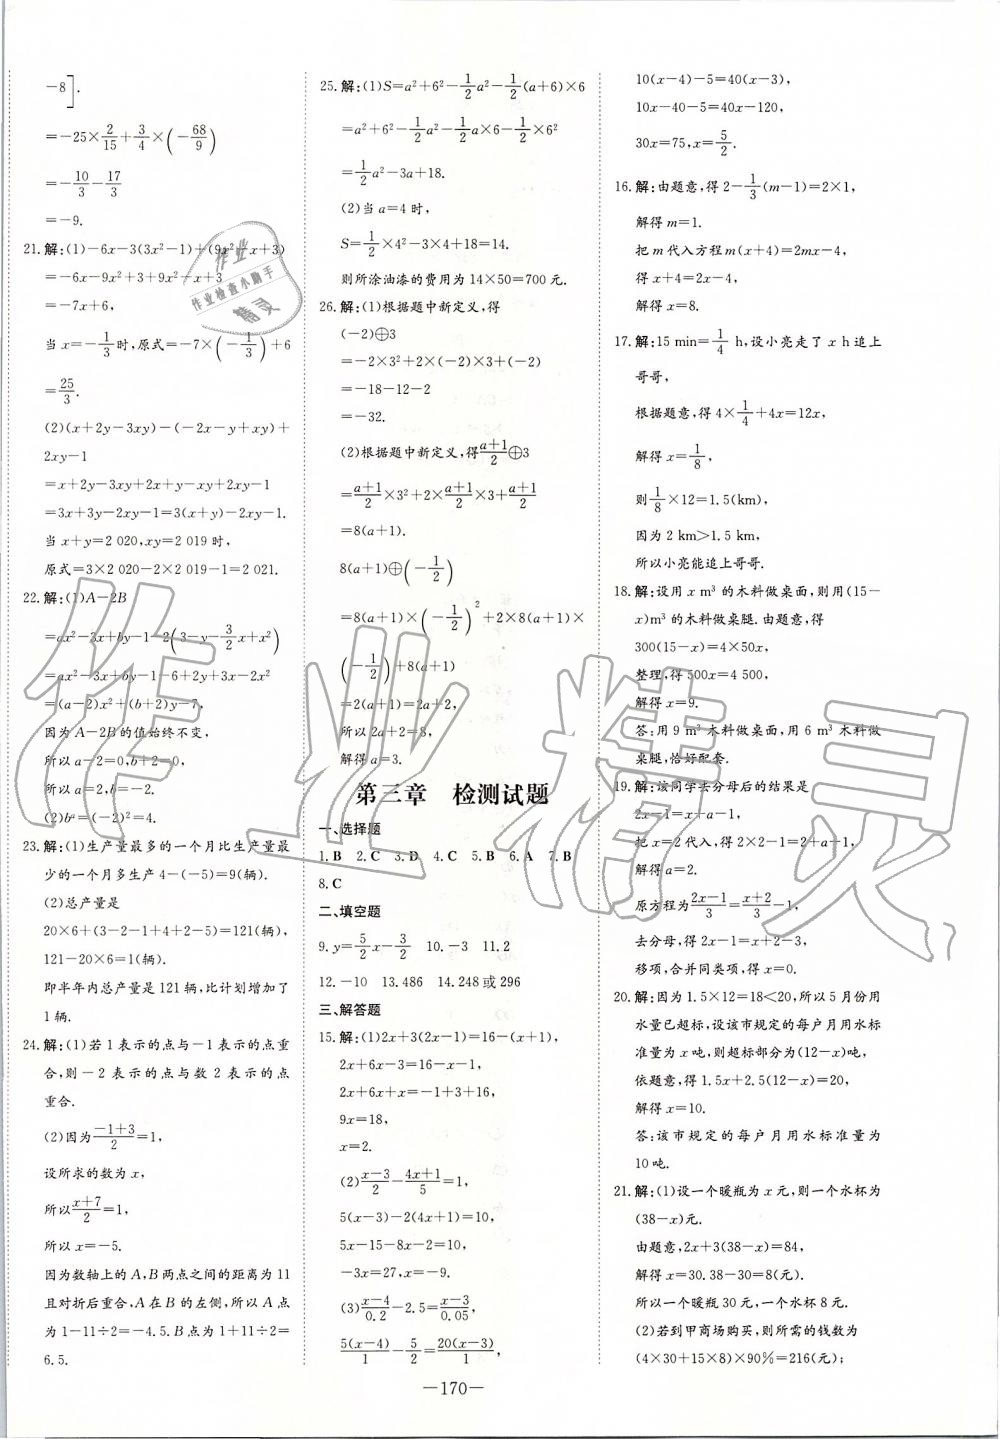 -8].
=-25×2/15+3/4×(-68/9)
=-10/3-17/3
=-9.
21.解:(1)-6x-3(3x²-1)+(9x²-x+3)
=-6x-9x²+3+9x²-x+3
=-7x+6,
当x=-1/3时,原式=-7×(-1/3)+6
=25/3.
(2)(x+2y-3xy)-(-2x-y+xy)+
2xy-1
=x+2y-3xy+2x+y-xy+2xy-1
=3x+3y-2xy-1=3(x+y)-2xy-1.
当x+y=2 020,xy=2 019时,
原式=3×2 020-2×2 019-1=2 021.
22.解:(1)A-2B
=ax²-3x+by-1-2(3-y-3/2x+x²)
=ax²-3x+by-1-6+2y+3x-2x²
=(a-2)x²+(b+2)y-7,
因为A-2B的值始终不变,
所以a-2=0,b+2=0,
所以a=2,b=-2.
(2)bᵃ=(-2)²=4.
23.解:(1)生产量最多的一个月比生产量最
少的一个月多生产4-(-5)=9(辆).
(2)总产量是
20×6+(3-2-1+4+2-5)=121(辆),
121-20×6=1(辆).
即半年内总产量是121辆,比计划增加了
1辆.
24.解:(1)若1表示的点与-1表示的点重
合,则-2表示的点与数2表示的点
重合.
(2)因为(-1+3)/2=1,
设所求的数为x,
所以(x+7)/2=1,
所以x=-5.
因为数轴上的A,B两点之间的距离为11
且对折后重合,A在B的左侧,所以A点
为1-11÷2=-4.5.B点为1+11÷2=
6.5.
25.解:(1)S=a²+6²-1/2a²-1/2(a+6)×6
=a²+6²-1/2a²-1/2a×6-1/2×6²
=1/2a²-3a+18.
(2)当a=4时,
S=1/2×4²-3×4+18=14.
则所涂油漆的费用为14×50=700元.
26.解:(1)根据题中新定义,得
(-2)⊕3
=-2×3²+2×(-2)×3+(-2)
=-18-12-2
=-32.
(2)根据题中新定义,得(a+1)/2⊕3
=(a+1)/2×3²+2×(a+1)/2×3+(a+1)/2
=8(a+1).
8(a+1)⊕(-1/2)
=8(a+1)×(-1/2)²+2×8(a+1)×
(-1/2)+8(a+1)
=2(a+1)=2a+2,
所以2a+2=8,
解得a=3.
第三章 检测试题
一、选择题
1.B 2.C 3.D 4.C 5.B 6.A 7.B
8.C
二、填空题
9.y=5/2x-3/2 10.-3 11.2
12.-10 13.486 14.248或296
三、解答题
15.解:(1)2x+3(2x-1)=16-(x+1),
2x+6x-3=16-x-1,
2x+6x+x=-1+3+16,
9x=18,
x=2.
(2)(x-3)/2-(4x+1)/5=1,
5(x-3)-2(4x+1)=10,
5x-15-8x-2=10,
-3x=27,x=-9.
(3)(x-4)/0.2-2.5=(x-3)/0.05,
5(x-4)/1-5/2=20(x-3)/1,
10(x-4)-5=40(x-3),
10x-40-5=40x-120,
30x=75,x=5/2.
16.解:由题意,得2-1/3(m-1)=2×1,
解得m=1.
把m代入方程m(x+4)=2mx-4,
得x+4=2x-4,
解得x=8.
17.解:15 min=1/4 h,设小亮走了x h追上
哥哥,
根据题意,得4×1/4+4x=12x,
解得x=1/8,
则1/8×12=1.5(km),
因为2 km>1.5 km,
所以小亮能追上哥哥.
18.解:设用x m³的木料做桌面,则用(15-
x)m³的木料做桌腿.由题意,得
300(15-x)=4×50x,
整理,得500x=4 500,
解得x=9.
答:用9 m³木料做桌面,用6 m³木料做
桌腿,恰好配套.
19.解:该同学去分母后的结果是
2x-1=x+a-1,
把x=2代入,得2×2-1=2+a-1,
解得a=2.
原方程为(2x-1)/3=(x+2)/3-1,
去分母,得2x-1=x+2-3,
移项,合并同类项,得x=0.
20.解:因为1.5×12=18<20,所以5月份用
水量已超标,设该市规定的每户月用水标
准量为x吨,则超标部分为(12-x)吨,
依题意,得1.5x+2.5(12-x)=20,
解得x=10.
答:该市规定的每户月用水标准量为
10吨.
21.解:(1)设一个暖瓶为x元,则一个水杯为
(38-x)元.
由题意,得2x+3(38-x)=84,
解得x=30.38-30=8(元).
所以一个暖瓶30元,一个水杯8元.
(2)若到甲商场购买,则所需的钱数为
(4×30+15×8)×90%=216(元);
—170—
作业精灵
作业
作业检查小助手
精灵